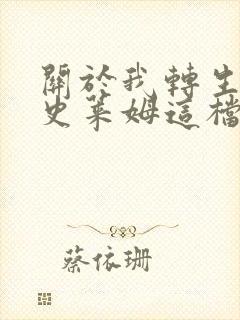 關於我轉生
史萊姆這檔
蔡依珊